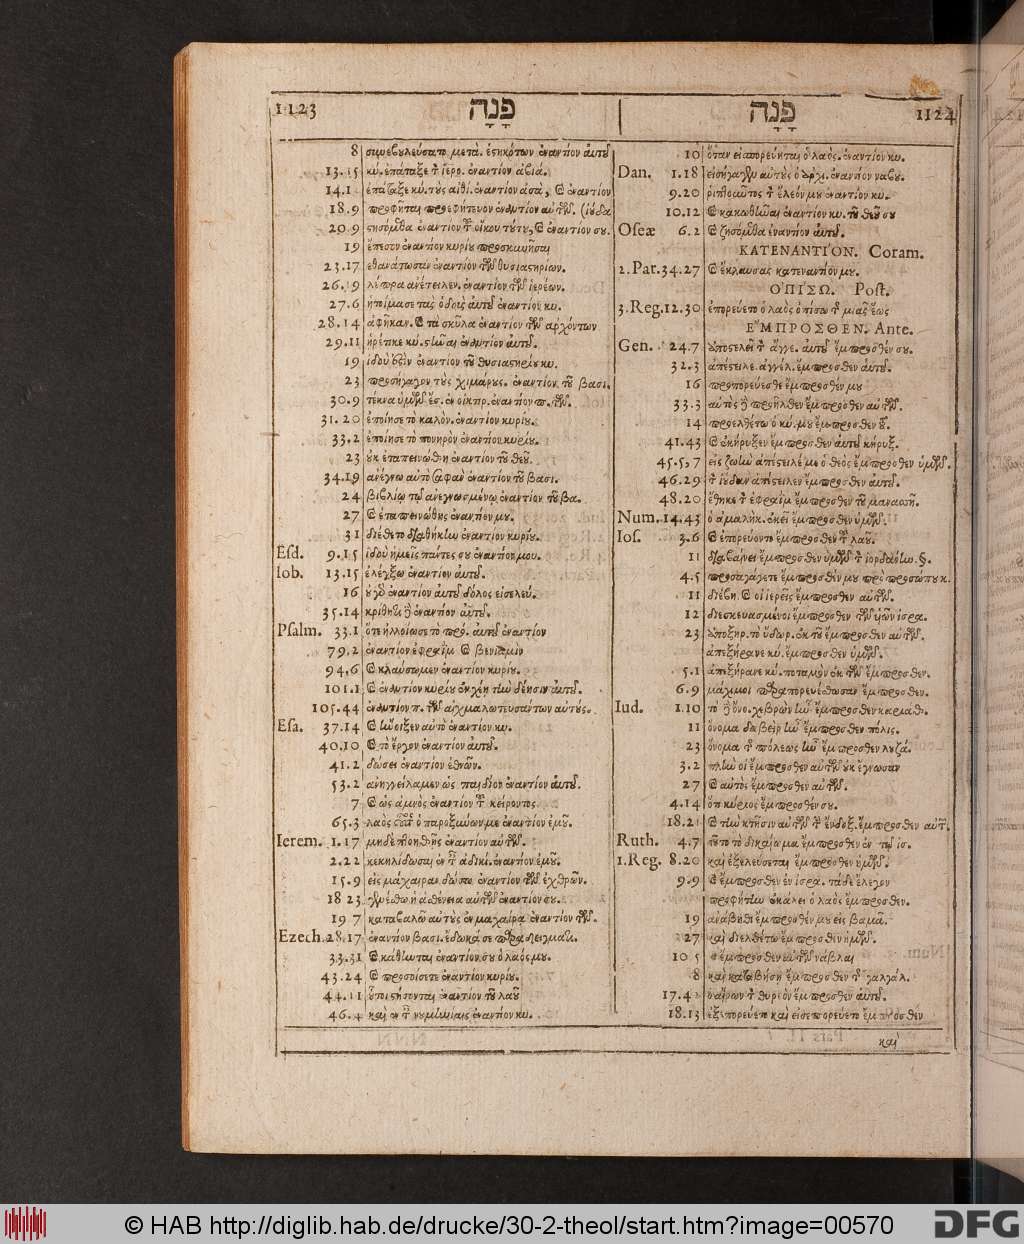 1123 פָּנָה
8 συνεβουλεύσατο μετὰ. ἑστηκότων ἐναντίον αὐτοῦ
13.15 κύ. ἐπάταξε τ̀ ἱερο. ἐναντίον ἀβιά.
14.1 ἐπάταξε κύ. τοὺς αἰθί. ἐναντίον ἀσὰ, καὶ ἐναντίον
18.9 προφῆται προεφήτευον ἐναντίον αὐτῶν. (ἰούδα
20.9 στησόμεθα ἐναντίον τοῦ οἴκου τούτου, καὶ ἐναντίον σου.
19 ἔπεσον ἐναντίον κυρίου προσκυνῆσαι
23.17 ἐθανάτωσαν ἐναντίον τῶν θυσιαστηρίων.
26.19 λέπρα ἀνέτειλεν. ἐναντίον τῶν ἱερέων.
27.6 ἡτοίμασε τὰς ὁδοὺς αὐτοῦ ἐναντίον κυ.
28.14 ἀφῆκαν. καὶ τὰ σκῦλα ἐναντίον τῶν ἀρχόντων
29.11 ᾑρέτικε κύ. στῆναι ἐναντίον αὐτοῦ.
19 ἰδού ἐστιν ἐναντίον τοῦ θυσιαστηρίου κυ.
23 προσήγαγον τοὺς χιμάρους. ἐναντίον τοῦ βασι.
30.9 τέκνα ὑμῶν ἔσ. ἐν οἰκτιρ. ἐναντίον π. τῶν.
31.20 ἐποίησε τὸ καλὸν. ἐναντίον κυρίου.
33.2 ἐποίησε τὸ πονηρὸν ἐναντίον κυρίου.
23 οὐκ ἐταπεινώθη ἐναντίον τοῦ θεοῦ.
34.19 ἀνέγνω αὐτὸ σαφὰν ἐναντίον τοῦ βασι.
24 βιβλίῳ τῷ ἀνεγνωσμένῳ ἐναντίον τοῦ βα.
27 καὶ ἐταπεινώθης ἐναντίον μου.
31 διέθετο διαθήκην ἐναντίον κυρίου.
Esd. 9.15 ἰδοὺ ἡμεῖς πάντες σου ἐναντίον μου.
Iob. 13.15 ἐλέγξω ἐναντίον αὐτοῦ.
16 οὐ γὰρ ἐναντίον αὐτοῦ δόλος εἰσελεύ.
35.14 κρίθητι δὲ ἐναντίον αὐτοῦ.
Psalm. 33.1 ὅτε ἠλλοίωσε τὸ πρό. αὐτοῦ ἐναντίον
79.2 ἐναντίον ἐφραῒμ καὶ βενιαμὶν
94.6 καὶ κλαύσωμεν ἐναντίον κυρίου.
101.1 καὶ ἐναντίον κυρίου ἐκχέῃ τὴν δέησιν αὐτοῦ.
105.44 ἐναντίον π. τῶν αἰχμαλωτευσάντων αὐτούς.
Esa. 37.14 καὶ ἤνοιξεν αὐτὸ ἐναντίον κυ.
40.10 καὶ τὸ ἔργον ἐναντίον αὐτοῦ.
41.2 δώσει ἐναντίον ἐθνῶν.
53.2 ἀνηγγείλαμεν ὡς παιδίον ἐναντίον αὐτοῦ.
7 καὶ ὡς ἀμνὸς ἐναντίον τοῦ κείροντος
65.3 λαὸς οὗτος ὁ παροξύνων με ἐναντίον ἐμοῦ.
Ierem. 1.17 μηδὲ πτοηθῇς ἐναντίον αὐτῶν.
2.22 κεκηλίδωσαι ἐν τ̀ ἀδικί. ἐναντίον ἐμοῦ.
15.9 εἰς μάχαιραν δώσω ἐναντίον τῶν ἐχθρῶν.
18 23 γενέσθω ἡ ἀσθένεια αὐτῶν ἐναντίον σου.
19 7 καταβαλῶ αὐτοὺς ἐν μαχαίρᾳ ἐναντίον τῶν.
Ezech. 28.17 ἐναντίον βασι. ἔδωκά σε παραδειγματι.
33.31 καὶ κάθηνται ἐναντίον σου ὁ λαός μου.
43.24 καὶ προσοίσετε ἐναντίον κυρίου.
44.11 οὗτοι στήσονται ἐναντίον τοῦ λαοῦ
46.4 καὶ ἐν τ̀ νυμηνίαις ἐναντίον κυ.
פָּנָה 1124
10 ὅταν εἰσπορεύηται ὁ λαὸς. ἐναντίον κυ.
Dan. 1.18 εἰσήγαγεν αὐτοὺς ὁ ἀρχι. ἐναντίον ναβου.
9.20 ῥιπτοῦντος τ̀ ἔλεόν μου ἐναντίον κυ.
10.12 καὶ κακωθῆναι ἐναντίον κυ. τοῦ θεοῦ σου
Oseæ 6.2 καὶ ζησόμεθα ἐναντίον αὐτοῦ.
ΚΑΤΕΝΑΝΤΙΌΝ. Coram.
2.Par.34.27 καὶ ἔκλαυσας κατεναντίον μου.
ὈΠΙΣΩ. Post.
3.Reg.12.30 ἐπορεύετο ὁ λαὸς ὀπίσω τ̀ μιᾶς ἕως
ἜΜΠΡΟΣΘΕΝ. Ante.
Gen. 24.7 ἀποστελεῖ τ̀ ἄγγε. αὐτοῦ ἔμπροσθέν σου.
32.3 ἀπέστειλε. ἀγγέλ. ἔμπροσθεν αὐτοῦ.
16 προπορεύεσθε ἔμπροσθέν μου
33.3 αὐτὸς δὲ προῆλθεν ἔμπροσθεν αὐτῶν.
14 προελθέτω ὁ κύ. μου ἔμπροσθεν τοῦ.
41.43 καὶ ἐκήρυξεν ἔμπροσθεν αὐτοῦ κῆρυξ.
45.5,7 εἰς ζωὴν ἀπέστειλέ με ὁ θεὸς ἔμπροσθεν ὑμῶν.
46.29 τ̀ ἰούδαν ἀπέστειλεν ἔμπροσθεν αὐτοῦ.
48.20 ἔθηκε τ̀ ἐφραῒμ ἔμπροσθεν τοῦ μανασσῆ.
Num. 14.43 ὁ ἀμαλὴκ. ἐκεῖ ἔμπροσθεν ὑμῶν.
Ios. 3.6 καὶ ἐπορεύοντο ἔμπροσθεν τοῦ λαοῦ.
11 διαβαίνει ἔμπροσθεν ὑμῶν τ̀ ἰορδάνην. §.
4.5 προσαγάγετε ἔμπροσθέν μου πρὸ προσώπου κ.
11 διέβη. καὶ οἱ ἱερεῖς ἔμπροσθεν αὐτῶν.
12 διεσκευασμένοι ἔμπροσθεν τῶν υἱῶν ἰσρα.
23 ἀποξηρ. τὸ ὕδωρ. ἐκ τοῦ ἔμπροσθεν αὐτῶν.
ἀπεξήρανε κύ. ἔμπροσθεν ὑμῶν.
5.1 ἀπεξήρανε κύ. ποταμὸν ἐκ τῶν ἔμπροσθεν.
6.9 μάχιμοι παραπορευέσθωσαν ἔμπροσθεν.
Iud. 1.10 τὸ δὲ ὄνο. χεβρὼν ἦν ἔμπροσθεν καριαθ.
11 ὄνομα δαβεὶρ ἦν ἔμπροσθεν πόλις.
23 ὄνομα τ̀ πόλεως ἦν ἔμπροσθεν λουζά.
3.2 πλὴν οἱ ἔμπροσθεν αὐτῶν οὐκ ἔγνωσαν
27 καὶ αὐτὸς ἔμπροσθεν αὐτῶν.
4.14 ὅτι κύριος ἔμπροσθέν σου.
18.21 καὶ τὴν κτῆσιν αὐτῶν τ̀ ἔνδοξ. ἔμπροσθεν αὐτ.
Ruth. 4.7 τοῦτο τὸ δικαίωμα ἔμπροσθεν ἐν τῷ ἰσ.
1.Reg. 8.20 καὶ ἐξελεύσεται ἔμπροσθεν ἡμῶν.
9.9 καὶ ἔμπροσθεν ἐν ἰσρα. τάδε ἔλεγον
προφήτην ἐκάλει ὁ λαὸς ἔμπροσθεν.
19 ἀνάβηθι ἔμπροσθέν μου εἰς βαμᾶ.
27 καὶ διελθέτω ἔμπροσθεν ἡμῶν.
10 5 ἔμπροσθεν αὐτῶν νάβλαι
8 καὶ καταβήσῃ ἔμπροσθεν τ̀ γαλγάλ.
17.41 ὁ αἴρων τ̀ θυρεὸν ἔμπροσθεν αὐτοῦ.
18.13 ἐξεπορεύετο καὶ εἰσεπορεύετο ἔμπροσθεν
καὶ
© HAB http://diglib.hab.de/drucke/30-2-theol/start.htm?image=00570
DFG